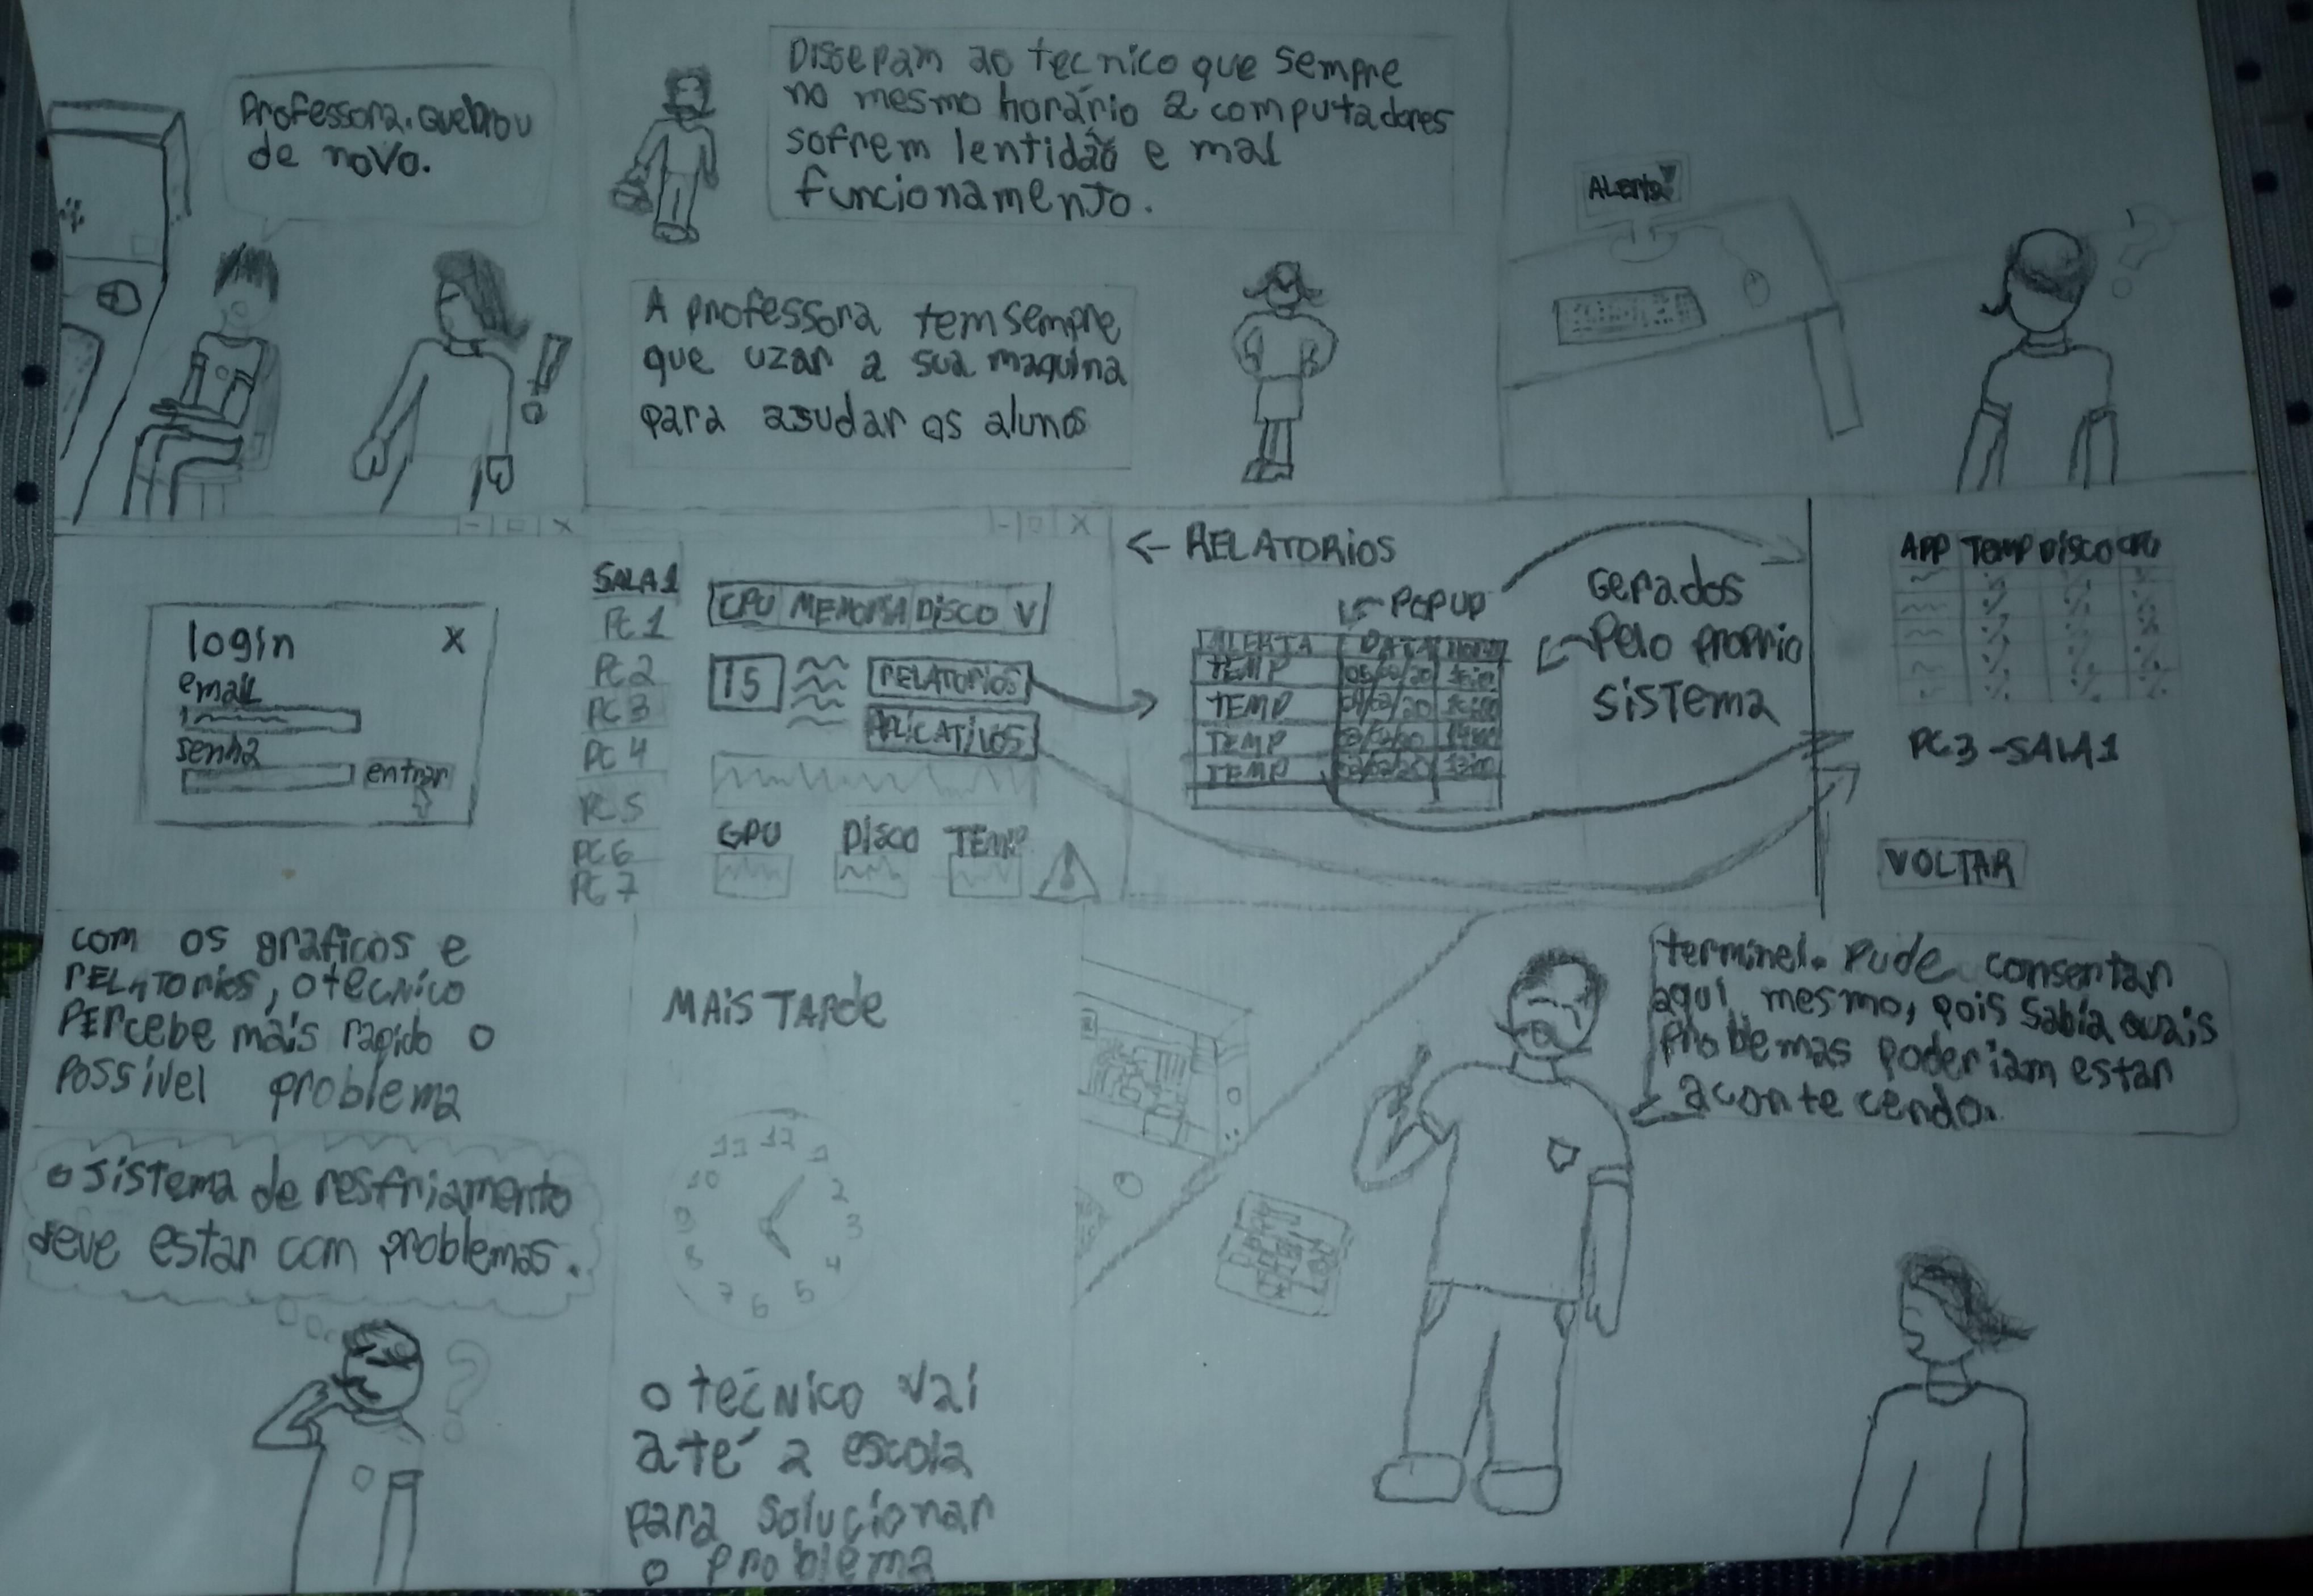 Professora. Quebrou
de novo.
Disseram ao tecnico que sempre
no mesmo horário 2 computadores
sofrem lentidão e mal
funcionamento.
A professora tem sempre
que uzar a sua maquina
para asudar os alunos
ALerta!
login X
email
senha
entrar
- □ X
SALA1
PC 1
PC 2
PC 3
PC 4
PC 5
PC 6
PC 7
- □ X
CPU MEMORIA DISCO V
15
RELATORIOS
APLICATIVOS
GPU DISCO TEMP
!
← RELATORIOS
POPUP
ALERTA DATA HORA
TEMP
TEMP
TEMP
TEMP
Gerados
Pelo proprio
sistema
APP TEMP DISCO CPU
PC3-SALA1
VOLTAR
com os graficos e
RELATORIOS, o tecnico
Percebe mais rapido o
Possivel problema
o sistema de resfriamento
deve estar com problemas.
MAIS TARDE
11 12 1
10 2
9 3
8 4
7 6 5
o técnico vai
até a escola
para solucionar
o problema
terminei. Pude consertar
aqui mesmo, pois sabia quais
problemas poderiam estar
acontecendo.